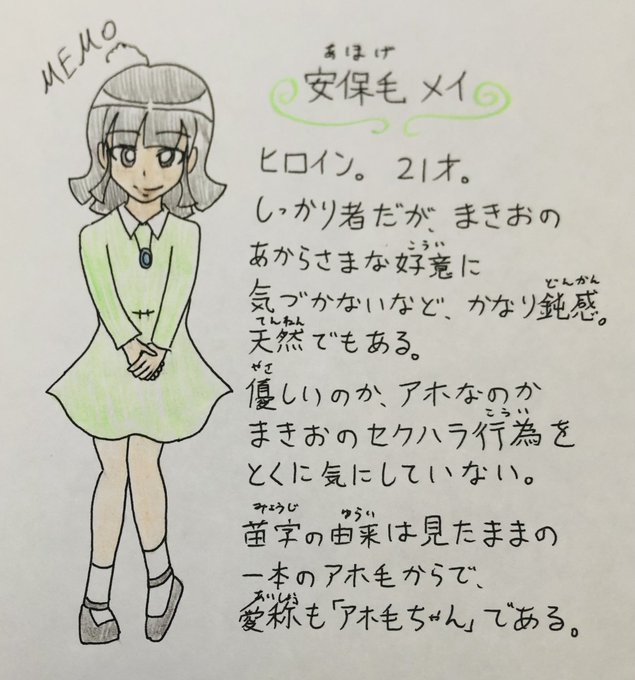 MEMO
あほげ
安保毛 メイ
ヒロイン。 21才。
しっかり者だが、まきおの
こうい
あからさまな好意に
どんかん
気づかないなど、かなり鈍感。
てんねん
天然でもある。
やさ
優しいのか、アホなのか
こうい
まきおのセクハラ行為を
とくに気にしていない。
みょうじ ゆらい
苗字の由来は見たままの
一本のアホ毛からで、
あいしょう
愛称も「アホ毛ちゃん」である。